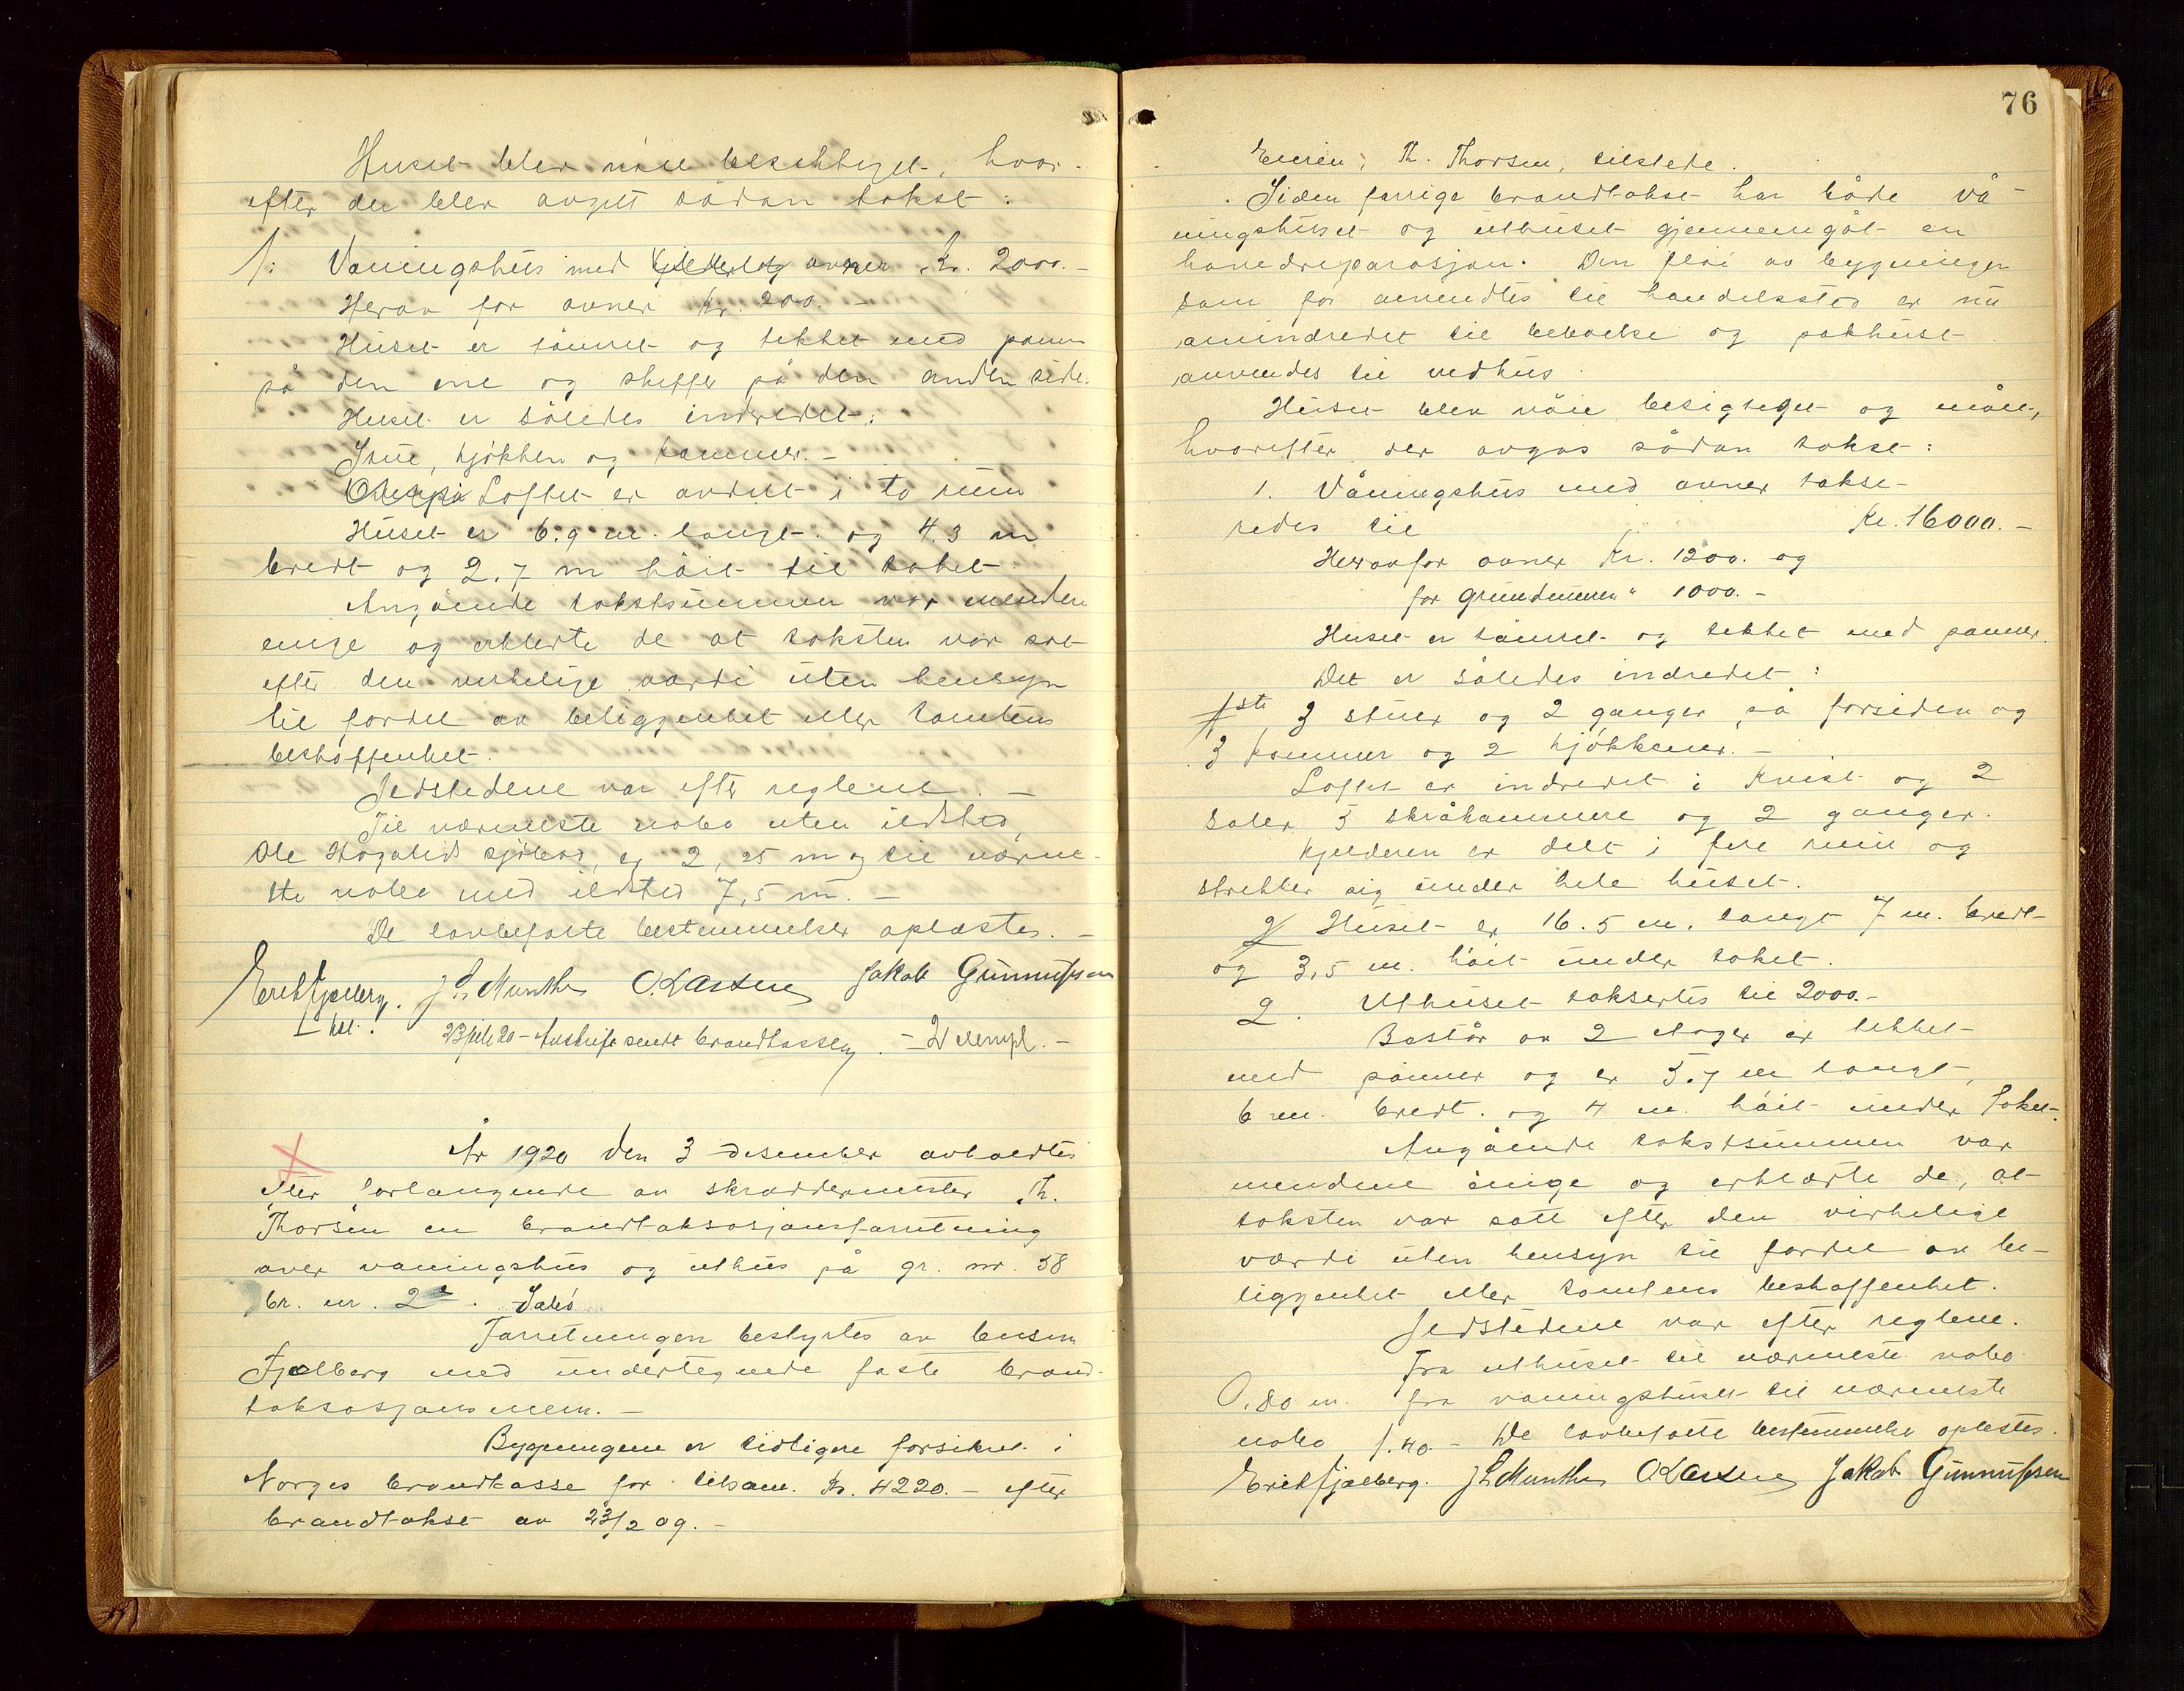 Huset blev nöie besiktiget, hvor-
efter der blev avgitt sådan takst:
1: Vaningshus med ovner Kr. 2000.-
Herav for ovner Kr. 200.-
Huset er tömret og tekket med panner
på den ene og skiffer på den anden side.
Huset er således indredet:
Stue, kjökken og kammer.-
Loftet er avdelt i to rum
Huset er 6.9 m. langt og 4.3 m
bredt og 2.7 m höit til taket
Angående takstsummen var mendene
enige og erklerte de at taksten var sat
efter den virkelige værdi uten hensyn
til fordel av beliggenhet eller tomtens
beskaffenhet.
Ildstedene var efter reglene.-
Til nærmeste nabo uten ildsted,
Ole sjöbod, er 2,25 m og til nærme-
ste nabo med ildsted 7,5 m.-
De lovbefalte bestemmelser oplæstes.-
Erik Fjælberg. J L Munthe O. Larsen Jakob Gunnufsen
23/ 20 - Avskrift sendt brandkassen.- 2 exempl.-
År 1920 den 3 desember avholdtes
efter forlangende av skræddermester Th.
Thorsen en brandtaksasjonsforretning
over vaningshus og uthus på gr. nr. 58
br. nr. 2
Forretningen bestyrtes av lensm
Fjælberg med undertegnede faste brand-
taksasjonsmenn.-
Bygningene er tidligere forsikret i
Norges brandkasse for tilsam. Kr. 4220.- efter
brandtakst av 23/2 09.-
76
Eieren, Th. Thorsen, tilstede.
Siden forrige brandtakst har både vå-
ningshuset og uthuset gjennemgåt en
hovedreparasjon. Den flöi av bygningen
som för anvendtes til handelssted er nu
omindredet til beboelse og pakhuset
anvendes til vedhus.
Huset blev nöie besigtiget og målt,
hvorefter der avgas sådan takst:
1. Våningshus med ovner takse-
redes til Kr. 16000.-
Herav for ovner Kr. 1200. og
for grundmuren " 1000.-
Huset er tömret og tekket med panner.
Det er således indredet:
1ste 3 stuer og 2 ganger på forsiden og
3 kammer og 2 kjökkener.-
Loftet er indredet i Kvist og 2
saler 3 skråkammere og 2 ganger.
Kjelderen er delt i fire rum og
strekker sig under hele huset.
Huset er 16.5 m. langt 7 m. bredt
og 3,5 m. höit under taket.
2. Uthuset taksertes til 2000.-
Består av 2 etager er tekket
med panner og er 5.7 m langt,
6 m. bredt. og 4 m. höit under taket.
Angående takstsummen var
mendene enige og erklærte de, at
taksten var satt efter den virkelige
værdi uten hensyn til fordel av be-
liggenhet eller tomtens beskaffenhet.
Ildstedene var efter reglene.
Fra uthuset til nærmeste nabo
0.80 m. fra vaningshuset til nærmeste
nabo 1.40.- De lovbefalte bestemmelser oplestes.
Erik Fjælberg. J L Munthe O. Larsen Jakob Gunnufsen